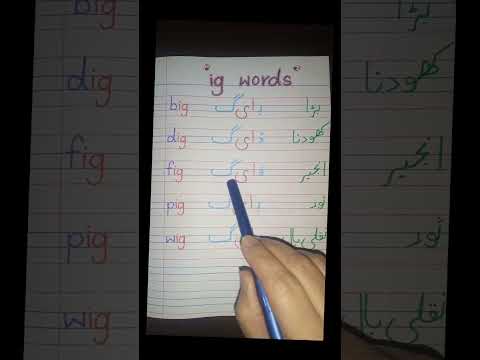 "ig words"
big بای گ بڑا
dig ڈای گ کھودنا
fig فای گ انجیر
pig
wig نقلی بال